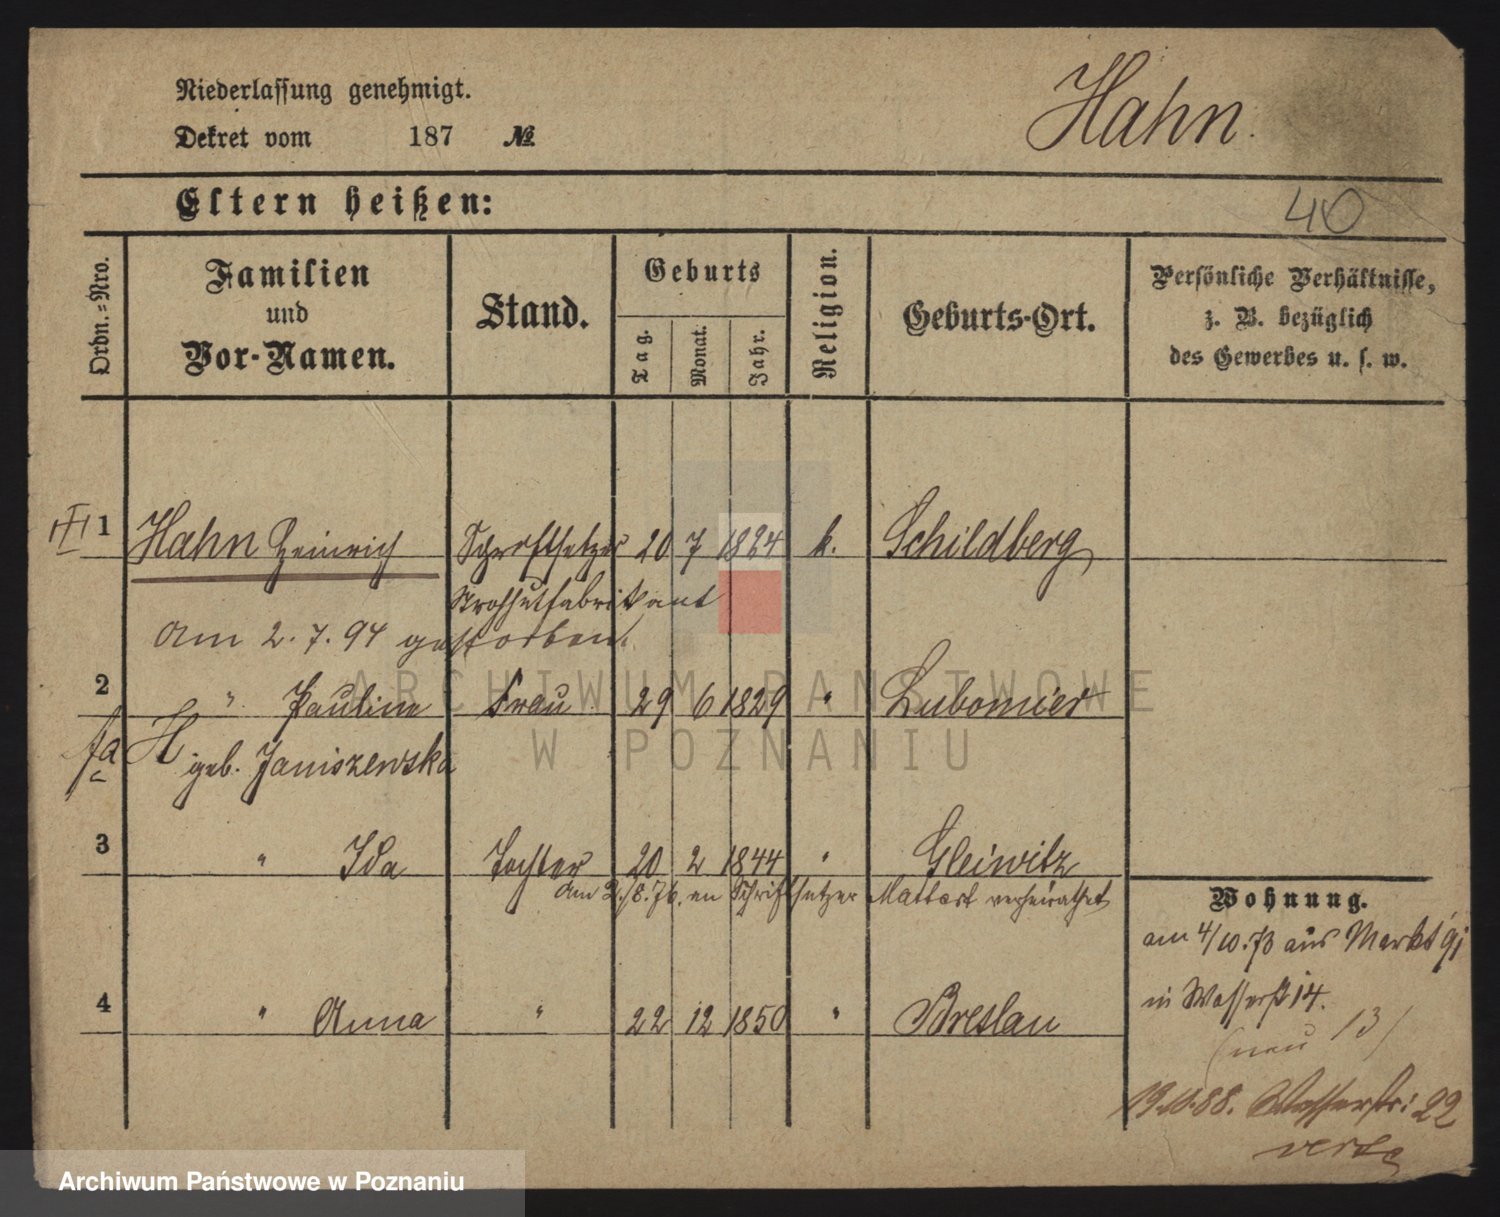 Niederlassung genehmigt.
Hahn.
Dekret vom 187 №
Eltern heißen:
40
Ordn.=Nro.
Familien
und
Vor-Namen.
Stand.
Geburts
Tag.
Monat.
Jahr.
Religion.
Geburts-Ort.
Persönliche Verhältnisse,
z. B. bezüglich
des Gewerbes u. s. w.
1 Hahn Heinrich Schriftsetzer 20 7 1824 k. Schildberg
Strohhutfabrikant
am 2.7.94 gestorben.
2 " Pauline Frau 29 6 1829 " Lubomier
fa H geb. Janiszewska
3 " Ida Tochter 20 2 1844 " Gleiwitz
am 2./8.76. an Schriftsetzer Mattert verheirathet
Wohnung.
am 4/10.73 aus Markt 91
in Wasserst 14.
4 " Anna " 22 12 1850 " Breslau
(neu 13)
19.10.88. Wasserstr: 22
ARCHIWUM PAŃSTWOWE
W POZNANIU
Archiwum Państwowe w Poznaniu